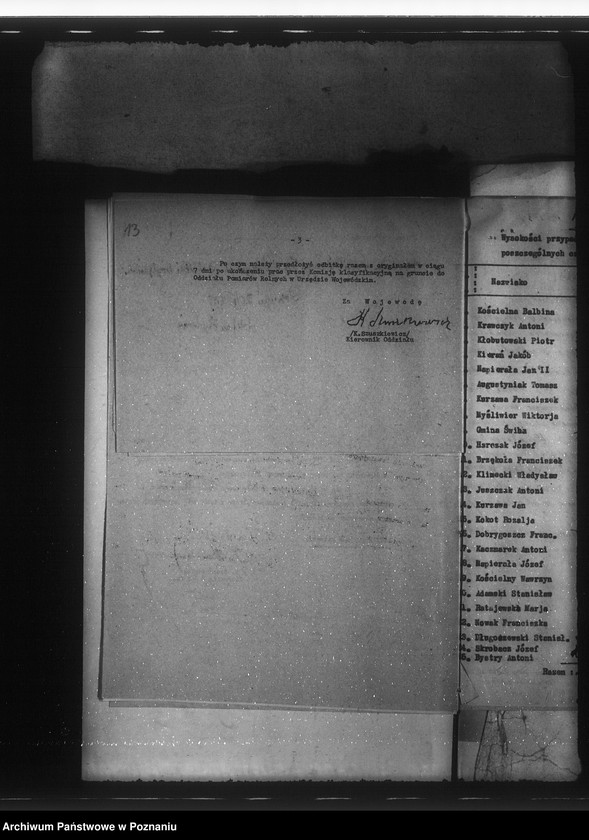 13
- 3 -
Po czym należy przedłożyć odbitkę razem z oryginałem w ciągu
7 dni po ukończeniu prac przez Komisję klasyfikacyjną na gruncie do
Oddziału Pomiarów Rolnych w Urzędzie Wojewódzkim.
Za Wojewodę
/K.Szuszkiewicz/
Kierownik Oddziału
Wysokości przypa
poszczególnych
Nazwisko
Kościelna Balbina
Krawczyk Antoni
Kłobutowski Piotr
Kierań Jakób
Napierała Jan II
Augustyniak Tomasz
Kurzawa Franciszek
Myśliwier Wiktorja
Gmina Świba
Harczak Józef
1. Brząkoła Franciszek
2. Klimecki Władysław
3. Juszczak Antoni
4. Kurzawa Jan
5. Kokot Rozalja
6. Dobrygoszcz Franc.
7. Kaczmarek Antoni
8. Napierała Józef
9. Kościelny Wawrzyn
0. Adamski Stanisław
1. Ratajewska Marja
2. Nowak Franciszka
3. Długoszewski Stanisł.
4. Skrobacz Józef
5. Bystry Antoni
Razem :
Archiwum Państwowe w Poznaniu